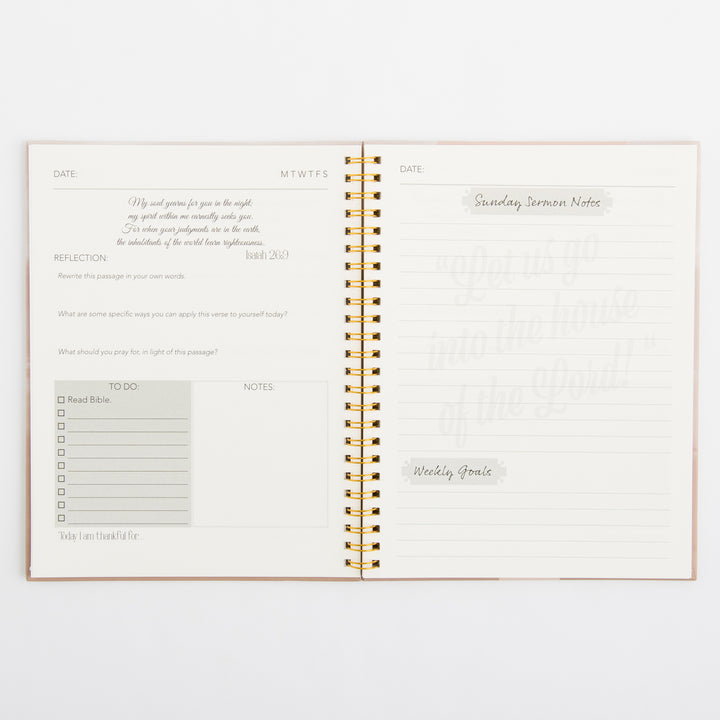 DATE: M T W T F S
My soul yearns for you in the night;
my spirit within me earnestly seeks you.
For when your judgments are in the earth,
the inhabitants of the world learn righteousness.
Isaiah 26:9
REFLECTION:
Rewrite this passage in your own words.
What are some specific ways you can apply this verse to yourself today?
What should you pray for, in light of this passage?
TO DO:
Read Bible.
NOTES:
Today I am thankful for...
DATE:
Sunday Sermon Notes
"Let us go
into the house
of the Lord!"
Weekly Goals